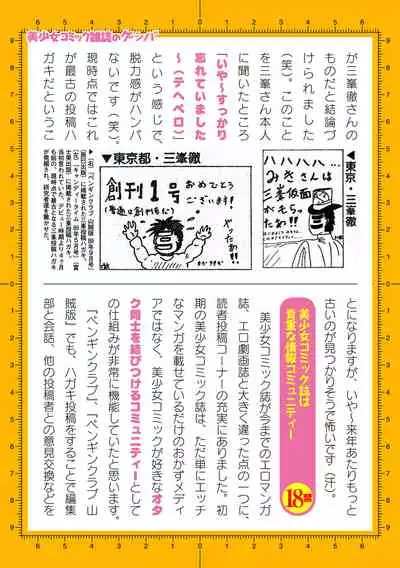 美少女コミック雑誌のゲンバ
が三峯徹さんの
ものだと結論づ
けられました
（笑）。このこと
を三峯さん本人
に聞いたところ
「いや～すっかり
忘れていました
～（テヘペロ）」
という感じで、
脱力感がハンパ
ないです（笑）。
現時点ではこれ
が最古の投稿ハ
ガキだというこ
▼東京・三峯徹
ハハハハ…
みきさんは
三峯仮面
がもらっ
たぁ!!
▼東京都・三峯徹
創刊1号
おめでとう
ございます!
やったぁ!!
とになりますが、いや～来年あたりもっと
古いのが見つかりそうで怖いです（汗）。
美少女コミック誌は
貴重な情報コミュニティー
18禁
美少女コミック誌が今までのエロマンガ
誌、エロ劇画誌と大きく違った点の一つに、
読者投稿コーナーの充実にありました。初
期の美少女コミック誌は、ただ単にエッチ
なマンガを載せているだけのおかずメディ
アではなく、美少女コミックが好きなオタ
ク同士を結びつけるコミュニティーとして
の仕組みが非常に機能していたと思います。
「ペンギンクラブ」、「ペンギンクラブ 山
賊版」でも、ハガキ投稿をすることで編集
部と会話、他の投稿者との意見交換などを